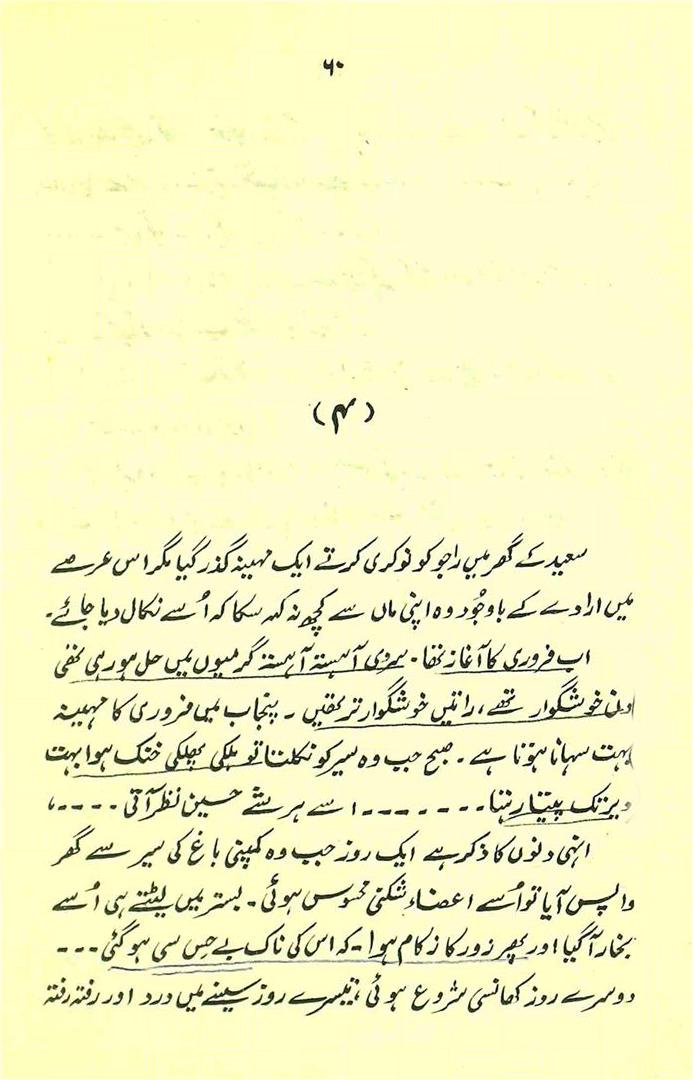 ۶۰
(۴)
سعید کے گھر میں راجو کو نوکری کرتے ایک مہینہ گذر گیا مگر اس عرصے
میں ارادے کے باوجُود وہ اپنی ماں سے کچھ نہ کہہ سکا کہ اُسے نکال دیا جائے۔
اب فروری کا آغاز تھا۔ سردی آہستہ آہستہ گرمیوں میں حل ہو رہی تھی
دن خوشگوار تھے، راتیں خوشگوار تر تھیں ۔ پنجاب میں فروری کا مہینہ
بہت سہانا ہوتا ہے۔ صبح جب وہ سیر کو نکلتا تو ہلکی پھلکی خنک ہوا بہت
دیر تک پیتا رہتا۔۔۔۔۔۔۔۔ اسے ہر شے حسین نظر آتی ۔۔۔۔،
انہی دنوں کا ذکر ہے ایک روز جب وہ کمپنی باغ کی سیر سے گھر
واپس آیا تو اُسے اعضاء شکنی محسوس ہوئی۔ بستر میں لیٹتے ہی اُسے
بخار آگیا اور پھر زور کا زکام ہوا۔ کہ اس کی ناک بے حِس سی ہو گئی۔۔۔
دوسرے روز کھانسی شروع ہوئی، تیسرے روز سینے میں درد اور رفتہ رفتہ